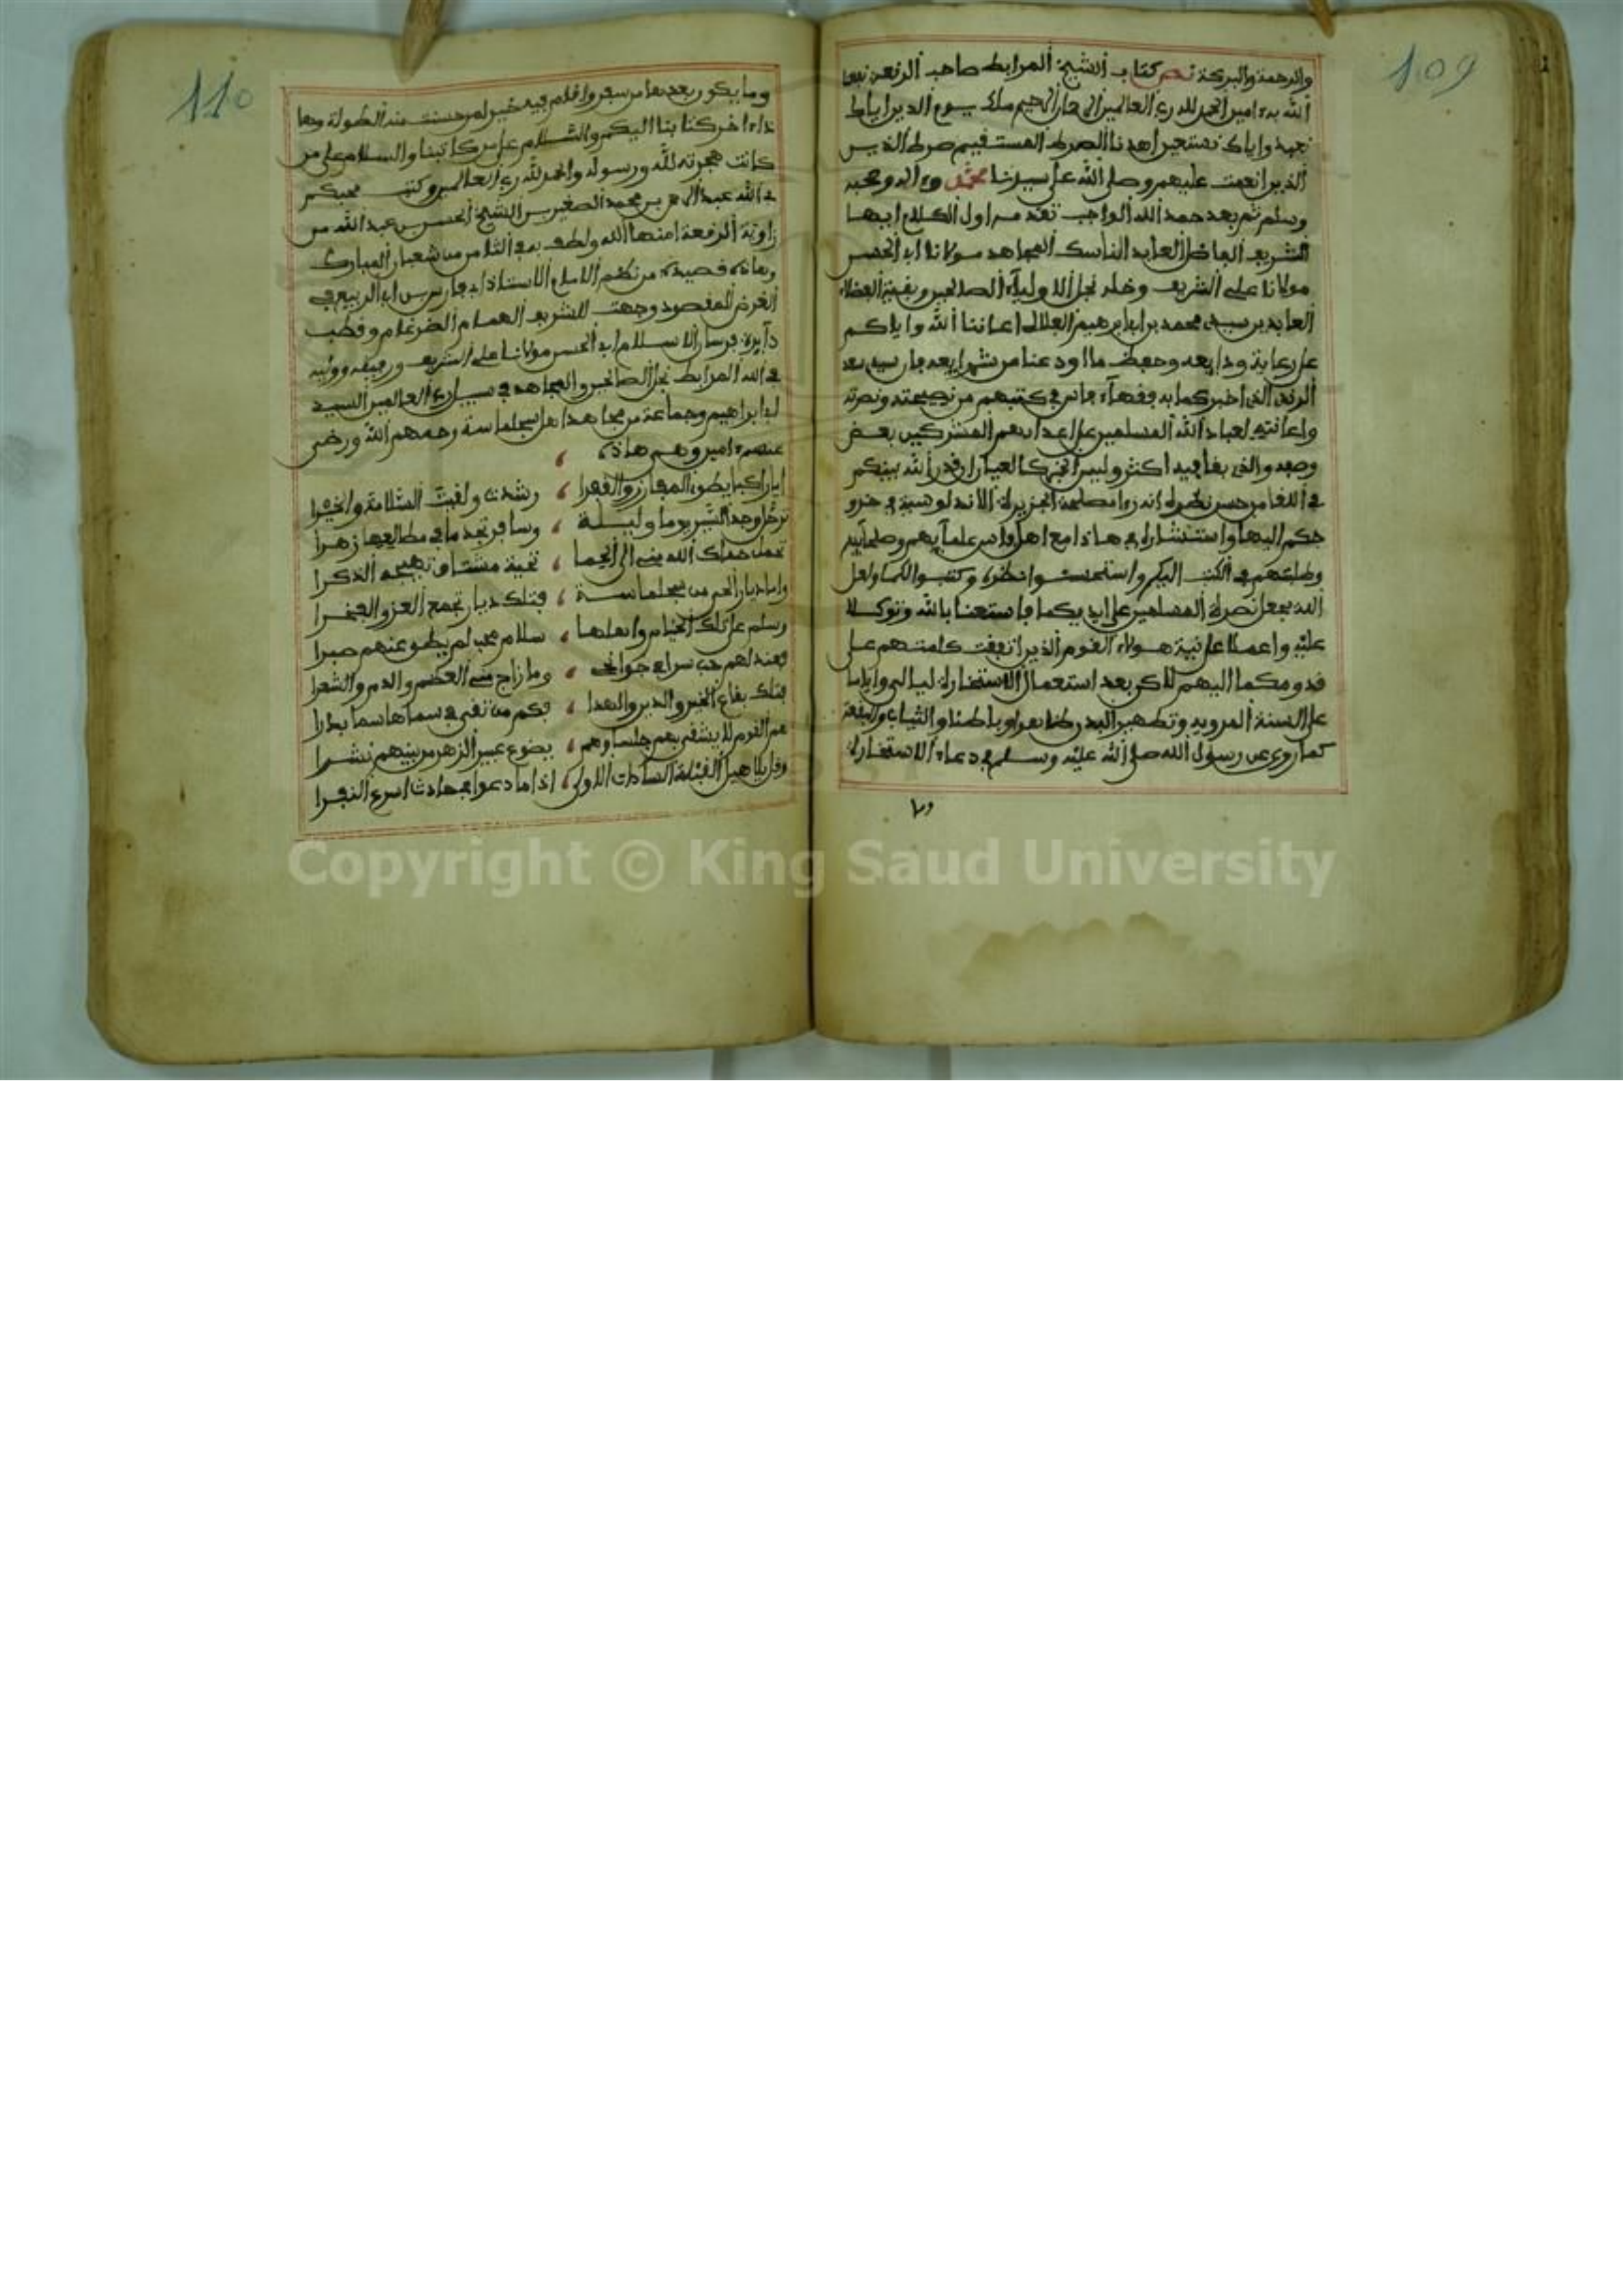 109
والرحمة والبركة نص كتاب الشيخ المرابط صاحب الرقعة نفعنا
الله به ءامين الحمد لله رب العالمين الرحمان الرحيم ملك يوم الدين اياك
نعبد واياك نستعين اهدنا الصراط المستقيم صراط الذين
الذين انعمت عليهم وصلى الله على سيدنا محمد وءاله وصحبه
وسلم ثم بعد حمد الله الواجب تقديمه اول الكلام ايها
الشريف الفاضل العابد الناسك المجاهد مولانا ابى الحسن
مولانا على الشريف وخله نجل الاولياء الصالحين وبقية الفضلاء
العابدين سيدى محمد بن ابراهيم اعاننا الله واياكم
على رعاية ودايعه وحفظ ما اودعنا من شرايعه فان سيدى
الذى اخبركما به فقهاء فاس فى كتبهم من نصيحته ونصرته
واعانته لعباد الله المسلمين على اعدايهم المشركين بعض
وصفه والذى بقا فيه اكثر وليس الخبر كالعيان ان قدر الله بينكم
فى اللقا من حسن نظره انه رءا مصلحة الجزيرة الاندلوسية فى
حكم اليها واستشارنى فى هاذا مع اهل فاس علمايهم وصلحايهم
وطلبهم فى الكتب اليكم واستحسنوا نظره وكتبوا لكما ولعل
الله يجعل نصرة المسلمين على ايديكما فاستعنا بالله وتوكلا
عليه واعملا على نية هولاء القوم الذين اتفقت كلمتهم على
قدومكما اليهم لاكن بعد استعمال الاستخارة ليالى واياما
على السنة المروية وتطهير البدن ظاهرا وباطنا والثياب والبقعة
كما روى عن رسول الله صلى الله عليه وسلم فى دعاء الاستخارة
وما
110
وما يكون بعدها من سفر واقام فيه خير لمن حسنت منه الطوية وها
ذا ءاخر كتابنا اليكم والسلام على من كاتبنا والسلام على من
كانت هجرته لله ورسوله والحمد لله رب العالمين وكتب محبكم
فى الله عبد الرحمن بن محمد الصغير بن الشيخ الحسن بن عبد الله من
زاوية الرقعة امنها الله ولطف به فى الثامن من شعبان المبارك
وهاذه قصيدة من نظم الامام الاستاذ ابى فارس بن ابى الربيع فى
الغرض المقصود وجهت للشريف الهمام الضرغام وقطب
دايرة فرسان الاسلام ابى الحسن مولانا على الشريف ورفيقه ووليه
فى الله المرابط نجل الصالحين والمجاهد فى سبيل رب العالمين السيد
ابراهيم وجماعة من مجاهدا اهل سجلماسة رحمهم الله ورضى
عنهم ءامين وهى هاذه
ايا راكبا يطوى المفاوز والقفرا ، رشدت ولقيت السلامة والخيرا
ترحل وجد السير يوما وليلة ، وسافر تجد ما فى مطالعها زهرا
تحمل حماك الله منى الى الحما ، تحية مشتاق تهيجه الذكرا
واما ديار الحى من سجلماسة ، فتلك ديار تجمع العز والفخرا
وسلم على تلك الخيام واهلها ، سلام محب لم يطق عنهم صبرا
فعندى لهم حب سرا فى جوانحى ، وما زاج منى العظم والدم والشعرا
فتلك بقاع الخير والدين والهدا ، فكم من تقى فى سماها سما بدرا
هم القوم لا يشقى بهم جليسهم ، يضوع عبير الزهر من بينهم نشرا
وقل يلاهيل القبلة السادات الاولى ، اذا ما دعوا فى حادث اسرع النفرا
Copyright © King Saud University